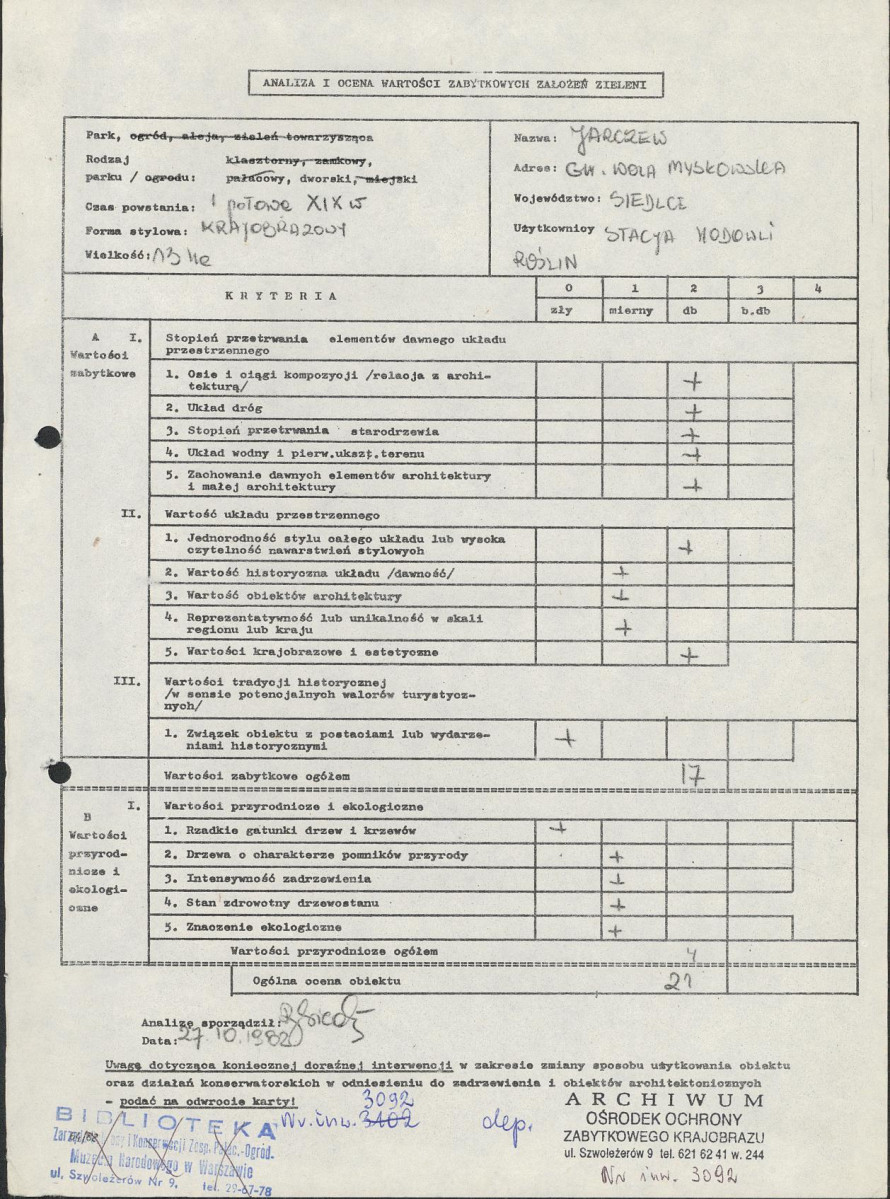 ANALIZA I OCENA WARTOŚCI ZABYTKOWYCH ZAŁOŻEŃ ZIELENI
Park, ogród, aleja, zieleń towarzysząca
Rodzaj klasztorny, zamkowy,
parku / ogrodu: pałacowy, dworski, miejski
Czas powstania: I połowa XIX w
Forma stylowa: KRAJOBRAZOWY
Wielkość: 13 ha
Nazwa: JARCZEW
Adres: GM. WOLA MYSŁOWSKA
Województwo: SIEDLCE
Użytkownicy STACJA HODOWLI
ROŚLIN
KRYTERIA
0 1 2 3 4
zły mierny db b.db
A I. Stopień przetrwania elementów dawnego układu
Wartości przestrzennego
zabytkowe
1. Osie i ciągi kompozycji /relacja z archi-
tekturą/ +
2. Układ dróg +
3. Stopień przetrwania starodrzewia +
4. Układ wodny i pierw.ukszt.terenu +
5. Zachowanie dawnych elementów architektury
i małej architektury +
II. Wartość układu przestrzennego
1. Jednorodność stylu całego układu lub wysoka
czytelność nawarstwień stylowych +
2. Wartość historyczna układu /dawność/ +
3. Wartość obiektów architektury +
4. Reprezentatywność lub unikalność w skali
regionu lub kraju +
5. Wartości krajobrazowe i estetyczne +
III. Wartości tradycji historycznej
/w sensie potencjalnych walorów turystycz-
nych/
1. Związek obiektu z postaciami lub wydarze-
niami historycznymi +
Wartości zabytkowe ogółem 17
B I. Wartości przyrodnicze i ekologiczne
Wartości
przyrod-
nicze i
ekologi-
czne
1. Rzadkie gatunki drzew i krzewów +
2. Drzewa o charakterze pomników przyrody +
3. Intensywność zadrzewienia +
4. Stan zdrowotny drzewostanu +
5. Znaczenie ekologiczne +
Wartości przyrodnicze ogółem 4
Ogólna ocena obiektu 21
Analizę sporządził:
Data: 27.10.1982
Uwagę dotyczącą koniecznej doraźnej interwencji w zakresie zmiany sposobu użytkowania obiektu
oraz działań konserwatorskich w odniesieniu do zadrzewienia i obiektów architektonicznych
- podać na odwrocie karty!
3092
Nr. inw. 3102 dep.
BIBLIOTEKA
i Konserwacji Zesp. Pałac.-Ogród.
Muzeum Narodowego w Warszawie
ul. Szwoleżerów Nr 9. tel. 29-67-78
ARCHIWUM
OŚRODEK OCHRONY
ZABYTKOWEGO KRAJOBRAZU
ul. Szwoleżerów 9 tel. 621 62 41 w. 244
Nr inw. 3092